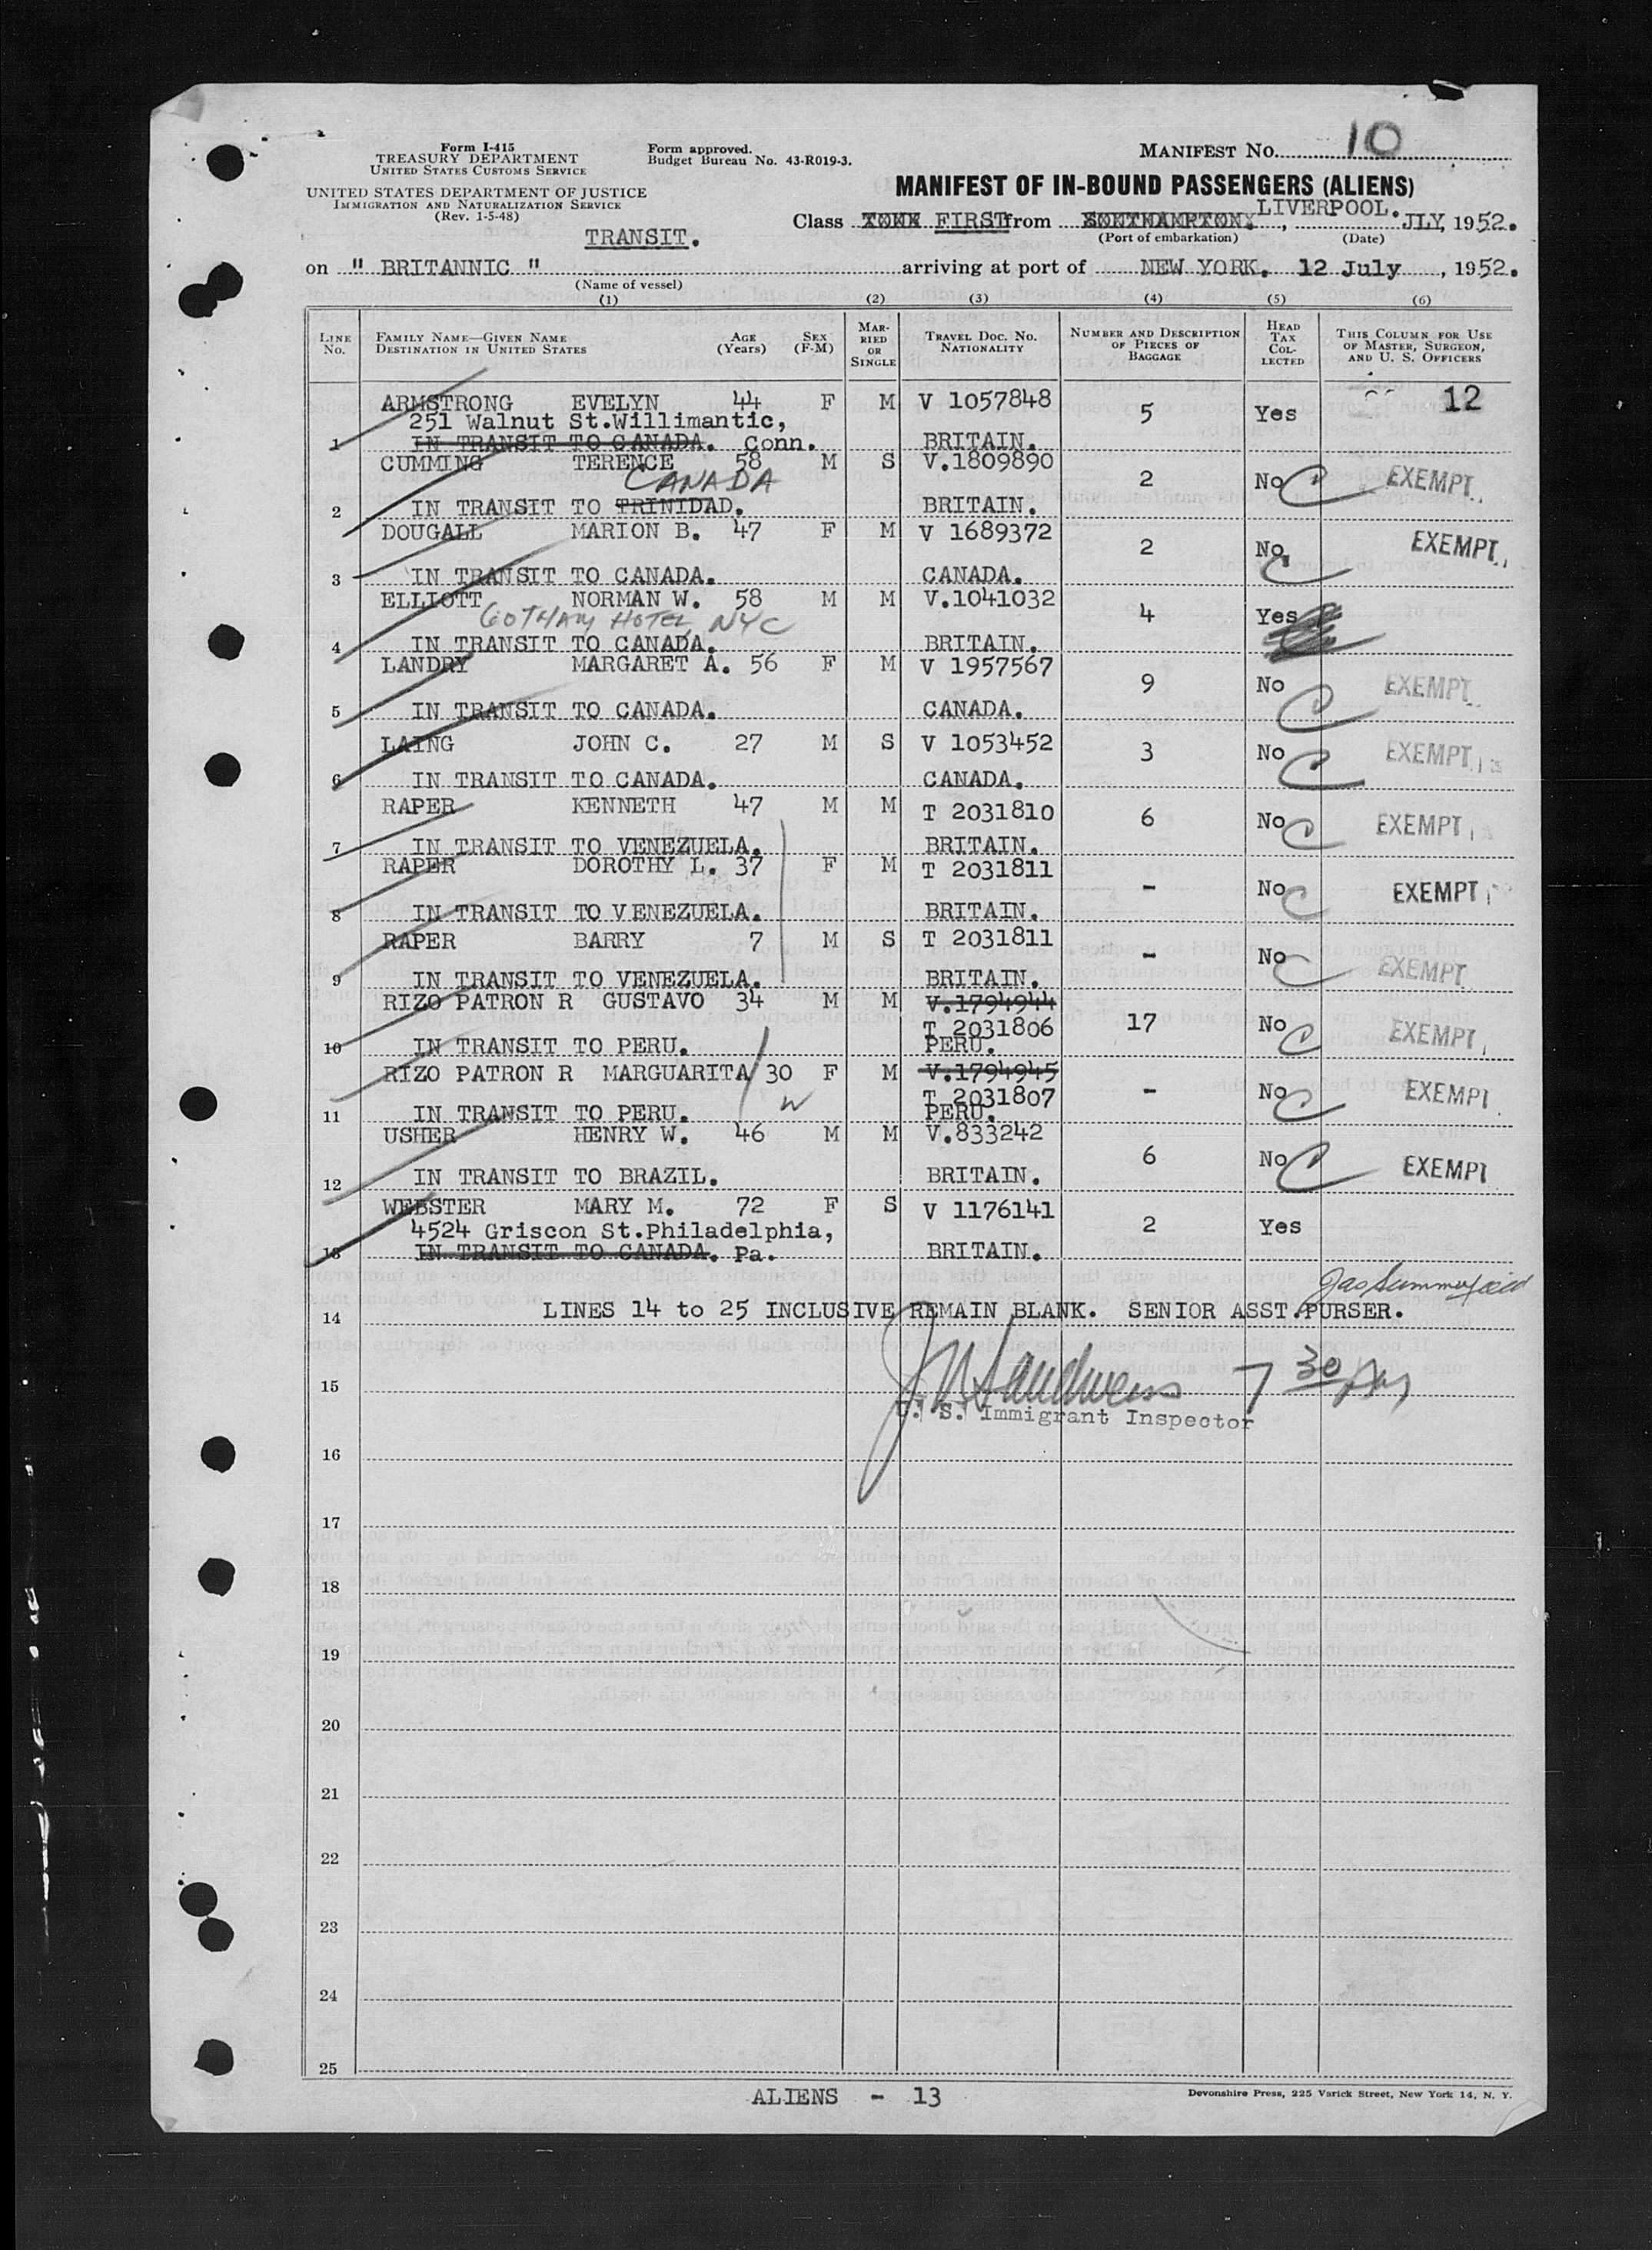 Form I-415
TREASURY DEPARTMENT
UNITED STATES CUSTOMS SERVICE
UNITED STATES DEPARTMENT OF JUSTICE
IMMIGRATION AND NATURALIZATION SERVICE
(Rev. 1-5-48)
Form approved.
Budget Bureau No. 43-R019-3.
MANIFEST No. 10
MANIFEST OF IN-BOUND PASSENGERS (ALIENS)
TRANSIT.
Class FIRST from SOUTHAMPTON, LIVERPOOL. JLY, 1952.
(Port of embarkation) (Date)
on " BRITANNIC " arriving at port of NEW YORK. 12 July, 1952.
(Name of vessel)
(1) (2) (3) (4) (5) (6)
LINE No. FAMILY NAME—GIVEN NAME DESTINATION IN UNITED STATES AGE (Years) SEX (F-M) MARRIED OR SINGLE TRAVEL DOC. NO. NATIONALITY NUMBER AND DESCRIPTION OF PIECES OF BAGGAGE HEAD TAX COLLECTED THIS COLUMN FOR USE OF MASTER, SURGEON, AND U. S. OFFICERS
ARMSTRONG EVELYN 44 F M V 1057848 5 Yes 12
251 Walnut St.Willimantic,
1 IN TRANSIT TO CANADA. Conn. BRITAIN.
CUMMING TERENCE 58 M S V.1809890 2 No C EXEMPT
CANADA
2 IN TRANSIT TO TRINIDAD. BRITAIN.
DOUGALL MARION B. 47 F M V 1689372 2 No C EXEMPT
3 IN TRANSIT TO CANADA. CANADA.
ELLIOTT NORMAN W. 58 M M V.1041032 4 Yes
GOTHAM HOTEL, NYC
4 IN TRANSIT TO CANADA. BRITAIN.
LANDRY MARGARET A. 56 F M V 1957567 9 No C EXEMPT
5 IN TRANSIT TO CANADA. CANADA.
LAING JOHN C. 27 M S V 1053452 3 No C EXEMPT
6 IN TRANSIT TO CANADA. CANADA.
RAPER KENNETH 47 M M T 2031810 6 No C EXEMPT
7 IN TRANSIT TO VENEZUELA. BRITAIN.
RAPER DOROTHY L. 37 F M T 2031811 - No C EXEMPT
8 IN TRANSIT TO VENEZUELA. BRITAIN.
RAPER BARRY 7 M S T 2031811 - No C EXEMPT
9 IN TRANSIT TO VENEZUELA. BRITAIN.
RIZO PATRON R GUSTAVO 34 M M V.1794944 17 No C EXEMPT
T 2031806
10 IN TRANSIT TO PERU. PERU.
RIZO PATRON R MARGUARITA 30 F M V.1794945 - No C EXEMPT
W T 2031807
11 IN TRANSIT TO PERU. PERU.
USHER HENRY W. 46 M M V.833242 6 No C EXEMPT
12 IN TRANSIT TO BRAZIL. BRITAIN.
WEBSTER MARY M. 72 F S V 1176141 2 Yes
4524 Griscon St.Philadelphia,
13 IN TRANSIT TO CANADA. Pa. BRITAIN.
Jas Summerfield
14 LINES 14 to 25 INCLUSIVE REMAIN BLANK. SENIOR ASST.PURSER.
15 7 30
U. S. Immigrant Inspector
16
17
18
19
20
21
22
23
24
25
ALIENS - 13
Devonshire Press, 225 Varick Street, New York 14, N. Y.